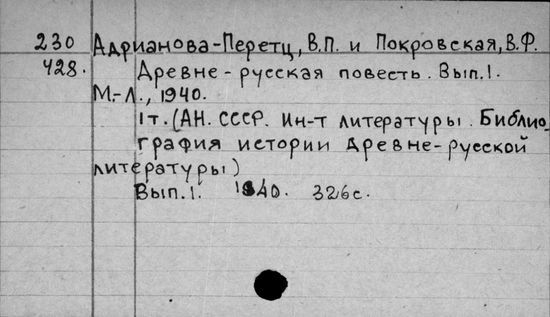 230 Адрианова-Перетц, В.П. и Покровская, В.Ф.
428. Древне-русская повесть. Вып. 1.
М.-Л., 1940.
1 т. (АН. СССР. Ин-т литературы. Библио-
графия истории древне-русской
литературы)
Вып. 1. 1940. 326 с.